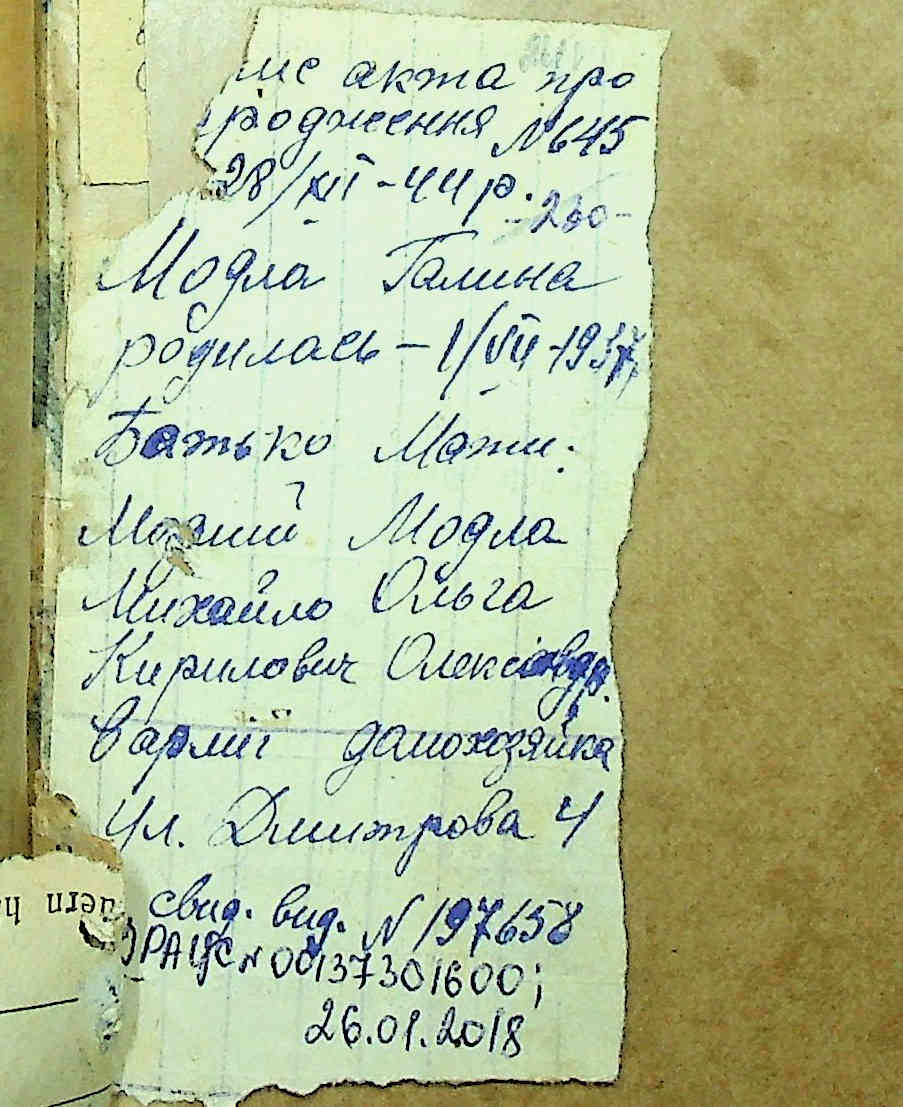 акта про
родження N 645
28/XII-44 р.
-230-
Модла Галина
родилась – 1/VII-1937
Батько Мати:
Модлий Модла
Михайло Ольга
Кирилович Олександр.
В армії домохозяйка
Ул. Дмитрова 4
свид. вид. N 197658
ДРАЦС N 00137301600;
26.01.2018
uern h